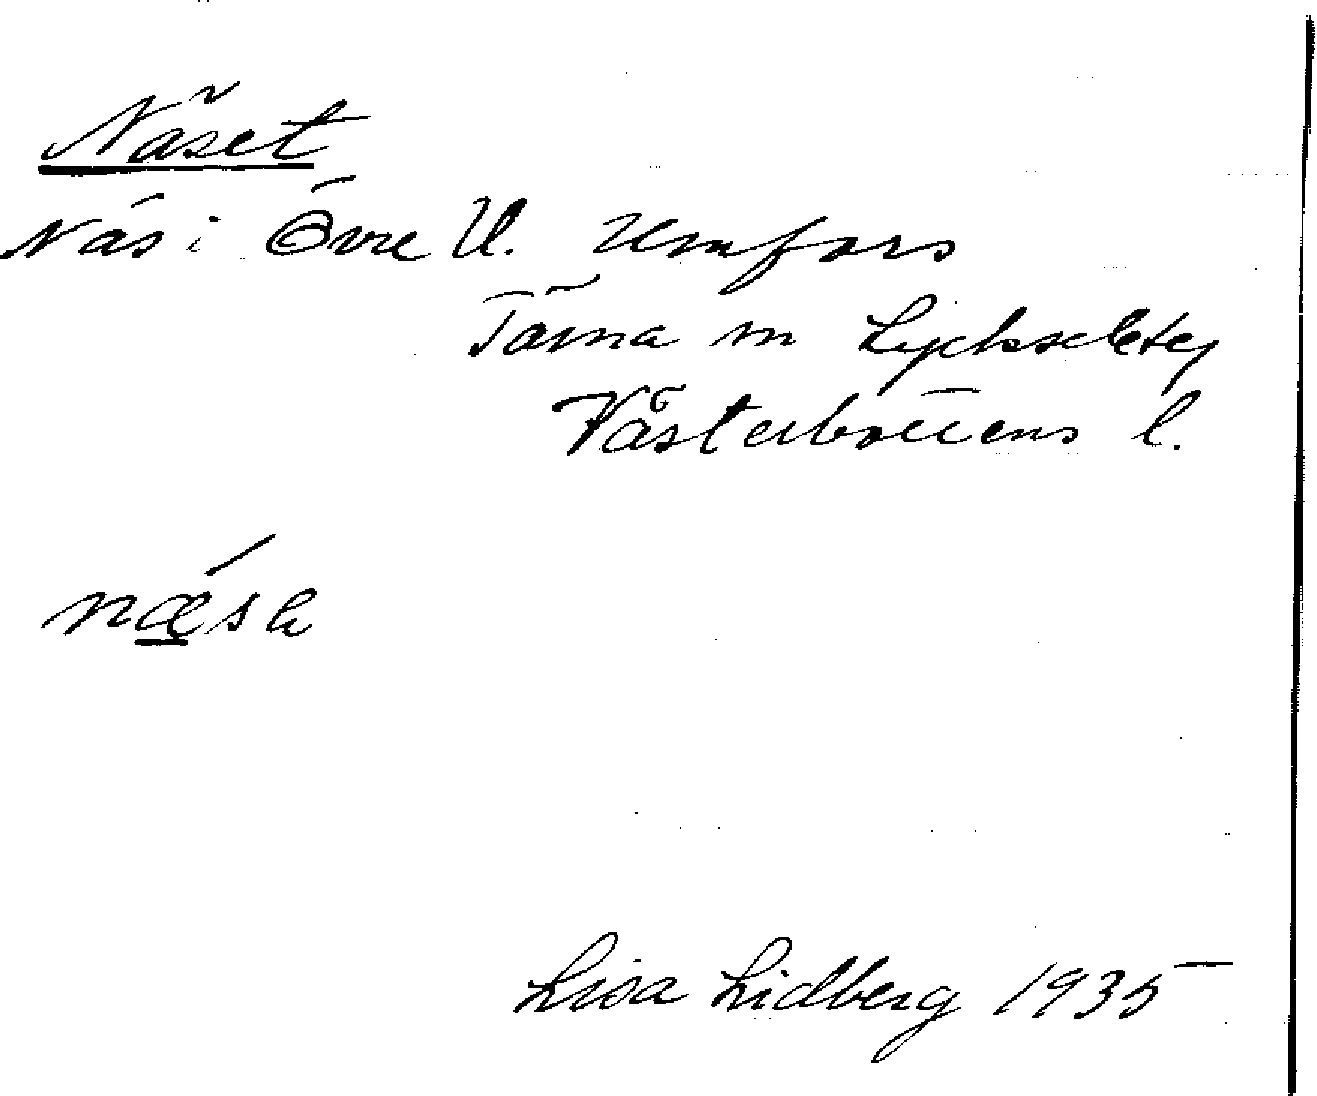 Näset
Näs i Övre U. Umfors
Tärna sn Lycksele tg
Västerbottens l.
næsə
Lisa Lidberg 1935